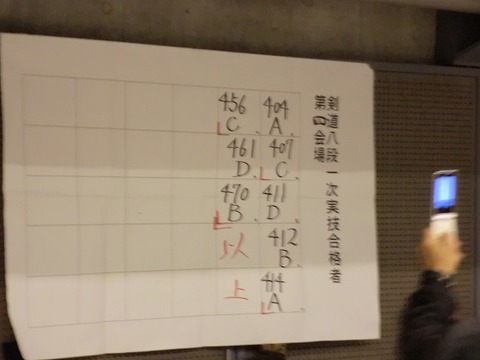 剣道八段一次実技合格者
第四会場
404
A
407
C
411
D
412
B
414
A
456
C
461
D
470
B
上